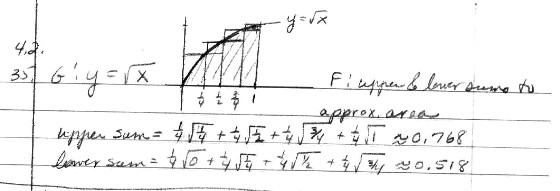 y=√x
4.2.
35. G: y=√x
1/4 1/2 3/4 1
F: upper & lower sums to
approx. area
upper sum = 1/4√1/4 + 1/4√1/2 + 1/4√3/4 + 1/4√1 ≈ 0.768
lower sum = 1/4√0 + 1/4√1/4 + 1/4√1/2 + 1/4√3/4 ≈ 0.518